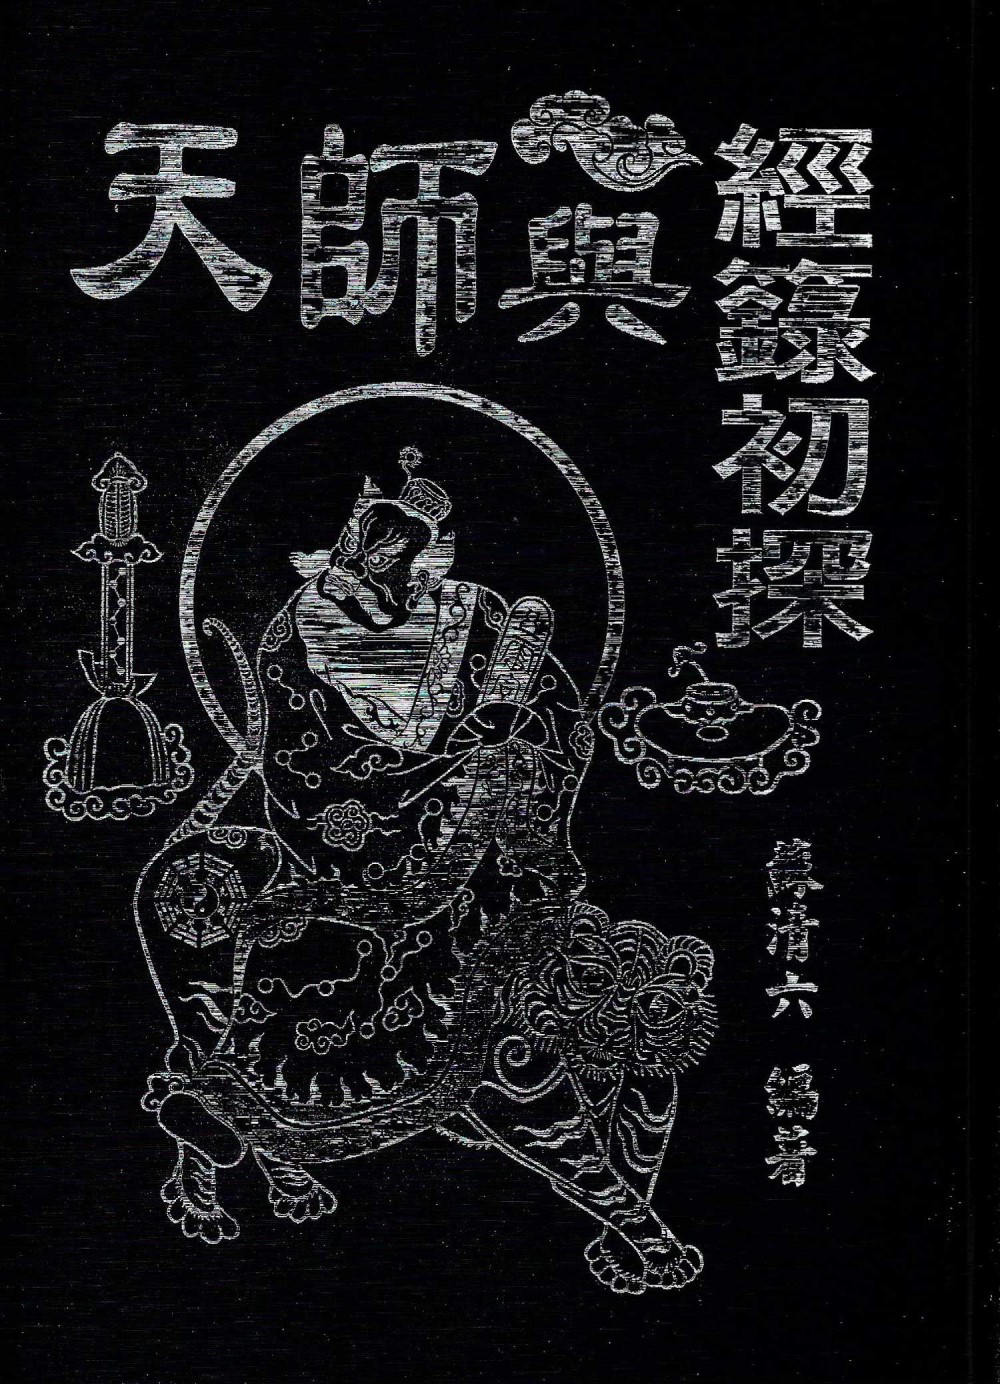 天師與
經籙初探
薛清六 編著